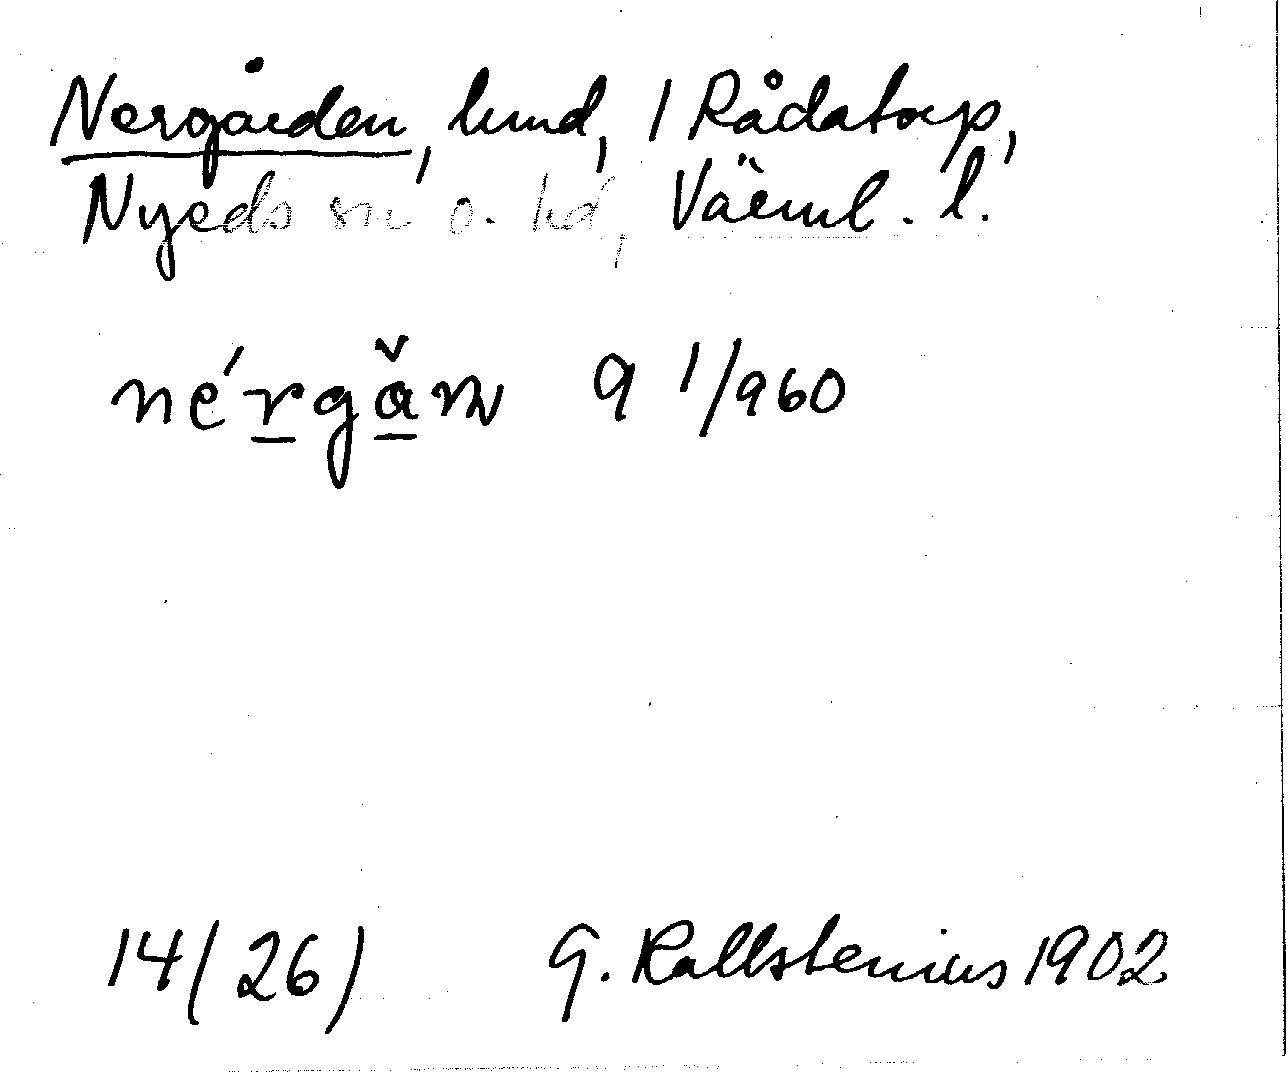 Nergården, lund, 1 Rådatorp,
Nyeds sn o. hd, Värml. l.
né̱rgå̌n 9 1/960
14(26) G. Kallstenius 1902